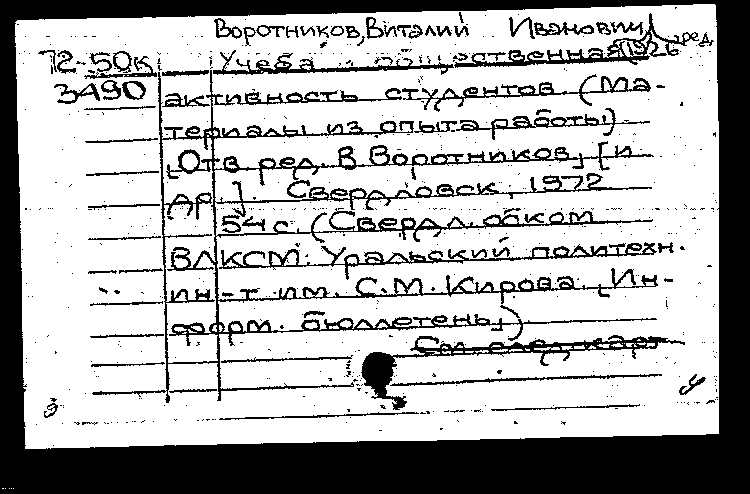 Воротников, Виталий Иванович, ред.
72-50к Учеба и общественная 1926
3490 активность студентов. (Ма-
териалы из опыта работы)
[Отв. ред. В. Воротников] [и
др.]. Свердловск, 1972
54 с. (Свердл. обком
ВЛКСМ. Уральский политехн.
ин-т им. С.М. Кирова. [Ин-
форм. бюллетень])
См. след. карт